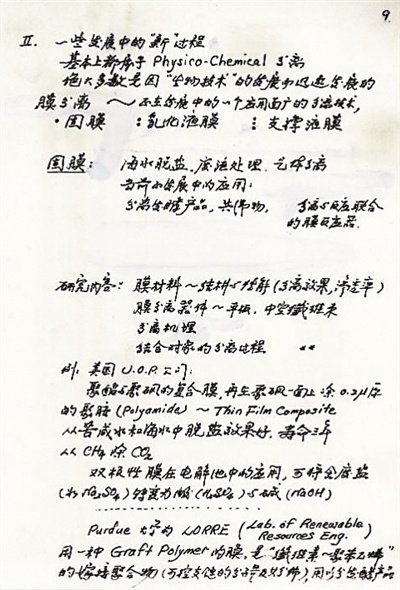 9.
II. 一些发展中的"新"过程
基本上都属于 Physico-Chemical 分离
绝大多数是因"生物技术"的发展而迅速发展的
膜分离 ~ 正在发展中的一个应用面广的分离技术,
· 固膜 : 乳化液膜 ⋮ 支撑液膜
固膜: 海水脱盐、废液处理、气体分离
当前的发展中的应用:
分离发酵产品, 共沸物, 分离与反应联合
的膜反应器.
研究内容: 膜材料 ~ 结构与性能 (分离效果, 渗透率)
膜分离器件 ~ 平板, 中空纤维束
分离机理
结合对象的分离过程
例: 美国 U.O.P. 公司:
聚酯与聚砜的复合膜, 再生聚砜一面上涂 0.2μ厚
的聚胺 (Polyamide) ~ Thin Film Composite
从苦咸水和海水中脱盐效果好, 寿命三年
从 CH₄ 除 CO₂
双极性膜在电解池中的应用, 可将金属盐
(如 Na₂SO₄) 转变为酸 (H₂SO₄) 与碱 (NaOH)
Purdue 大学的 LORRE (Lab. of Renewable
Resources Eng.)
用一种 Graft Polymer 的膜, 是"纤维素~聚苯乙烯"
的嫁接聚合物 (可控支链的分子) 用以分离产品